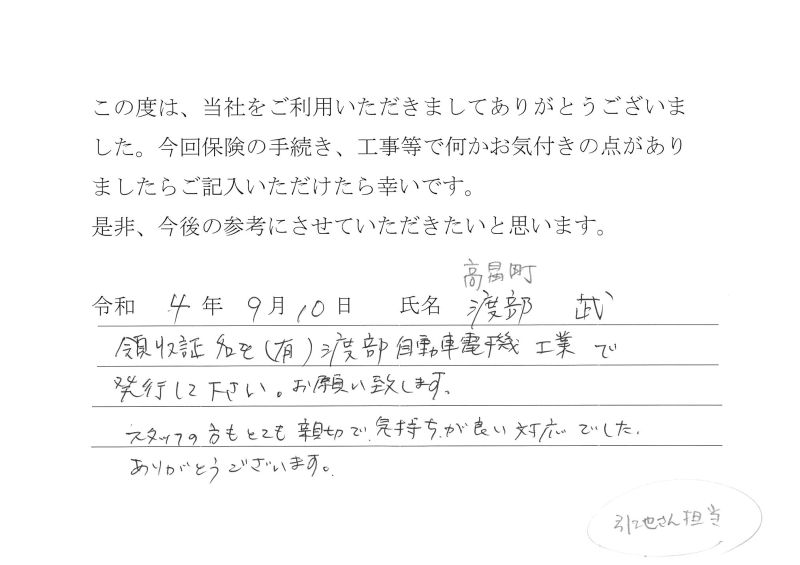 この度は、当社をご利用いただきましてありがとうございま
した。今回保険の手続き、工事等で何かお気付きの点があり
ましたらご記入いただけたら幸いです。
是非、今後の参考にさせていただきたいと思います。
高畠町
令和 4 年 9 月 10 日 氏名 渡部 武
領収証 名を(有)渡部自動車電機工業で
発行して下さい。お願い致します。
スタッフの方もとても親切で気持ちが良い対応でした。
ありがとうございます。
引地さん担当